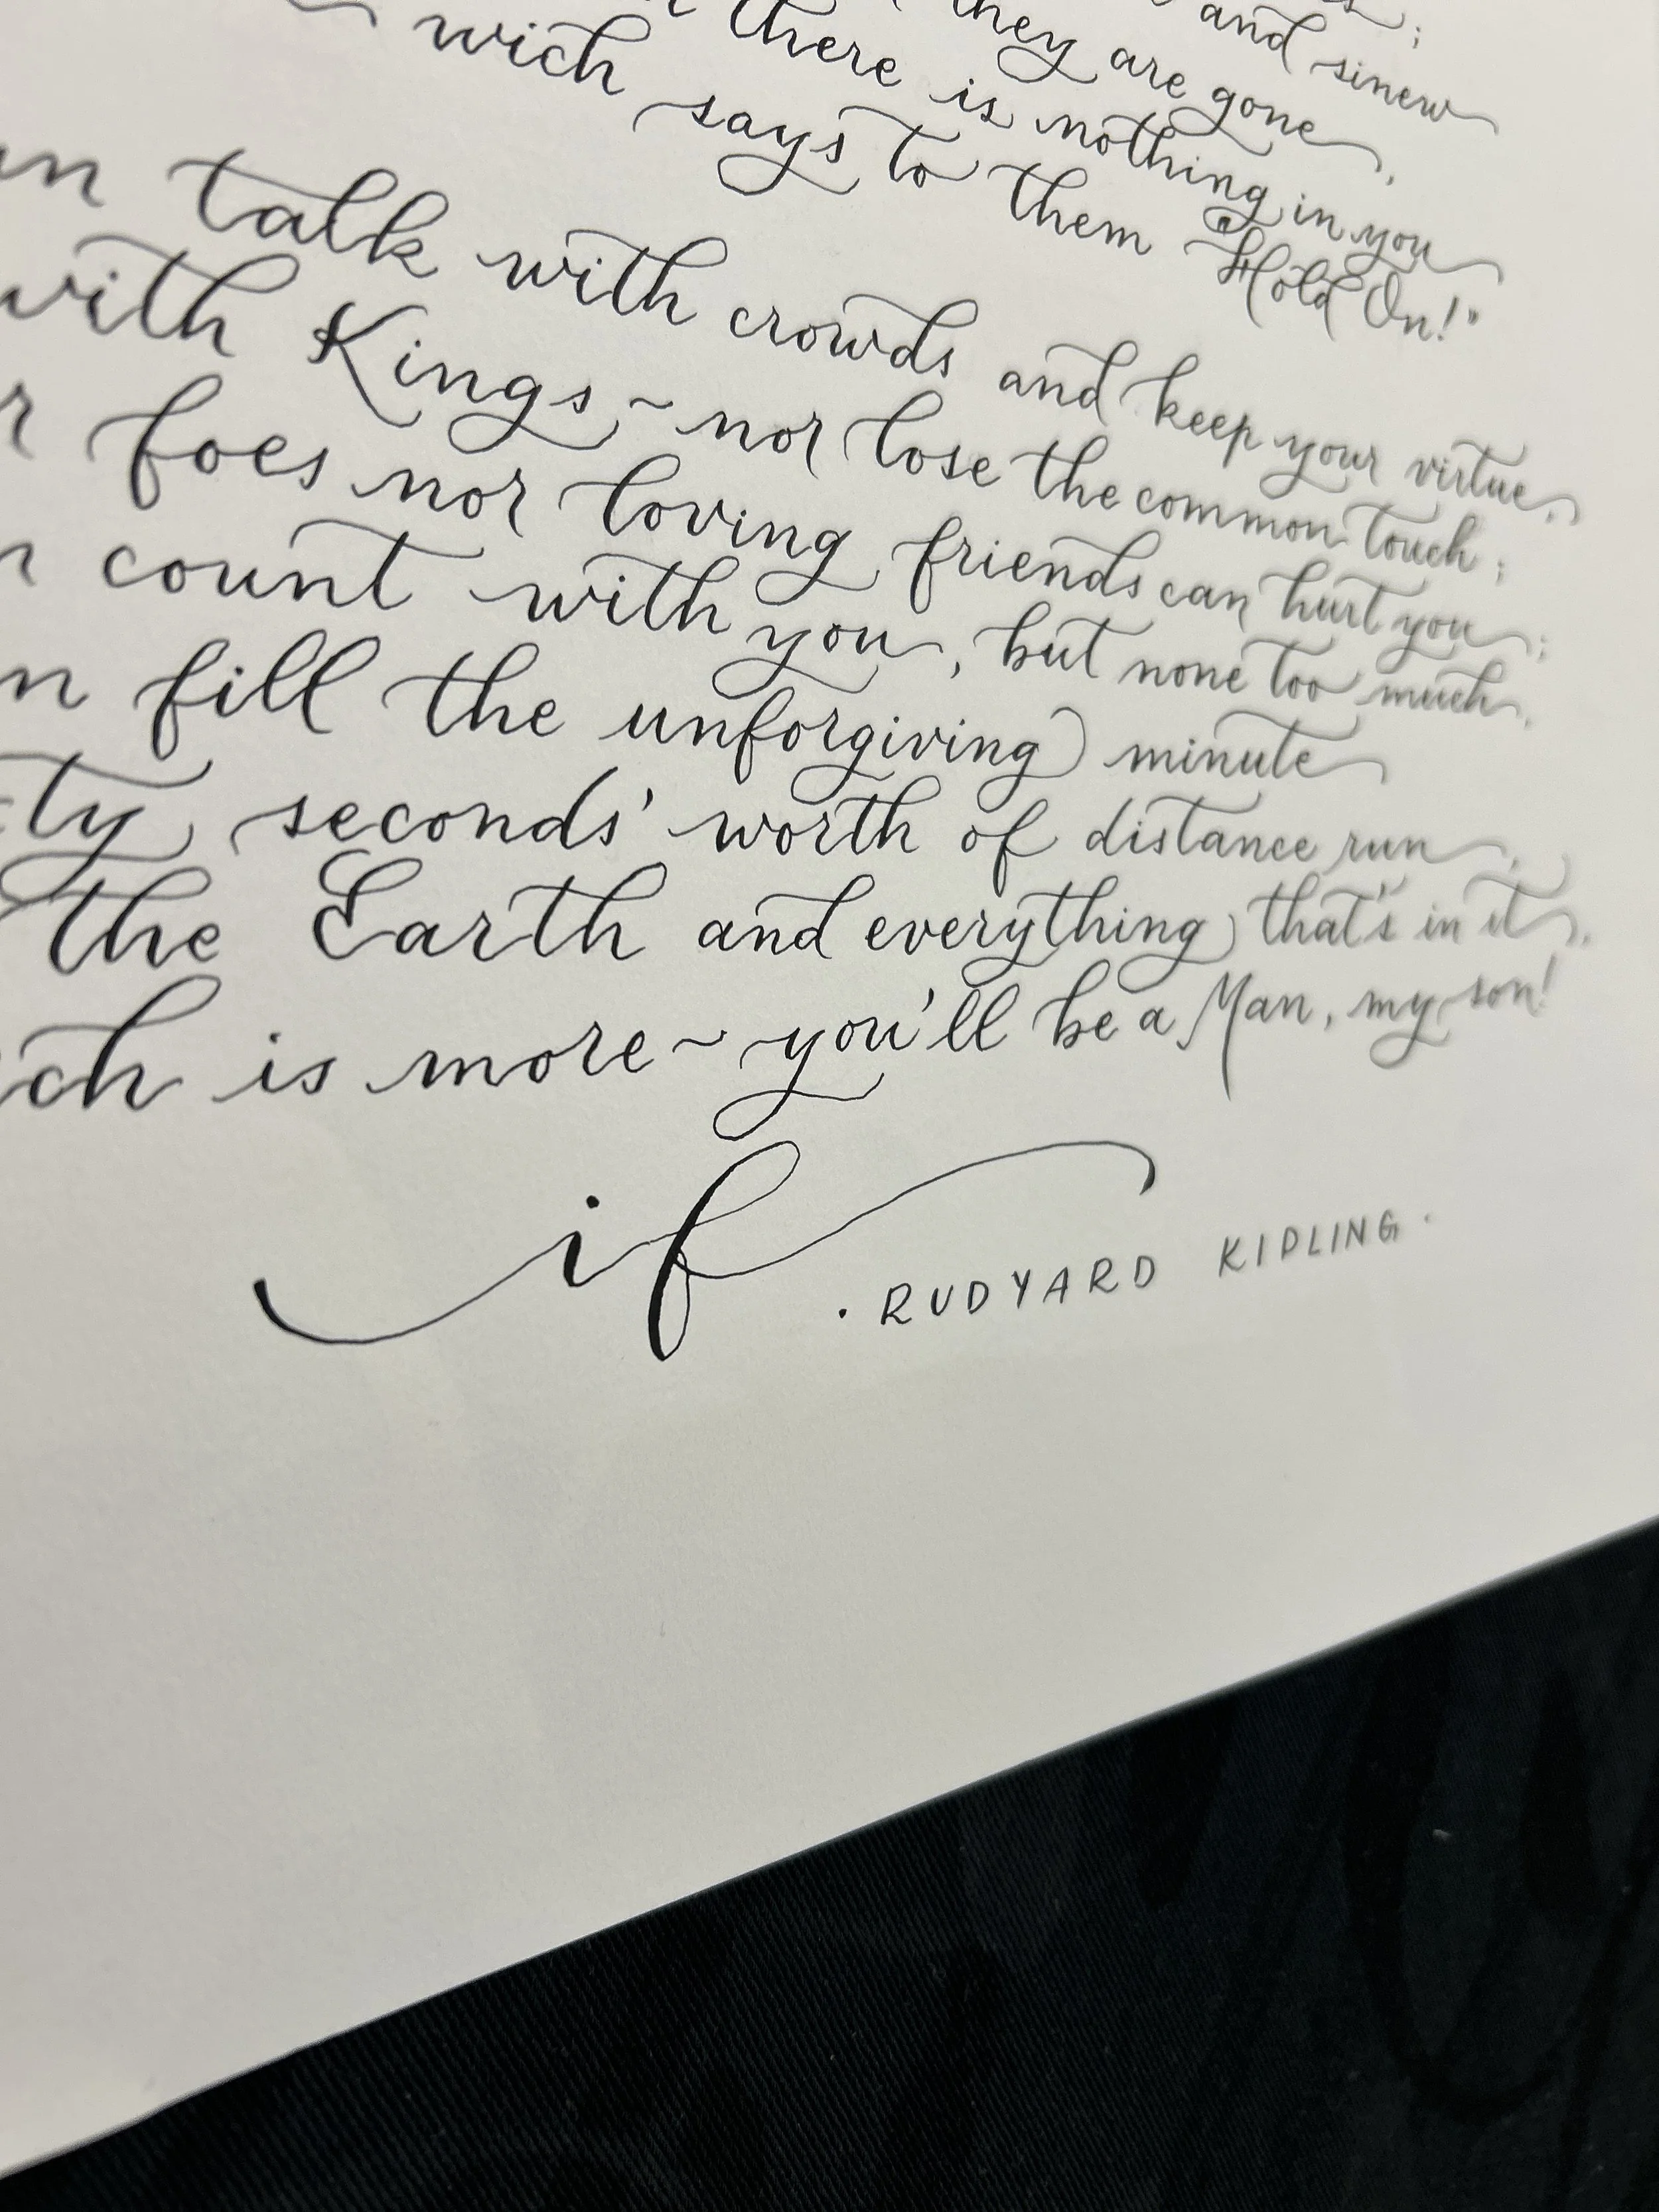 and sinew
they are gone,
there is nothing in you
wich says to them "Hold On!"
talk with crowds and keep your virtue,
with Kings ~ nor lose the common touch;
foes nor loving friends can hurt you;
count with you, but none too much,
fill the unforgiving minute
ty seconds' worth of distance run,
the Earth and everything that's in it,
ch is more ~ you'll be a Man, my son!
if
· RUDYARD KIPLING ·